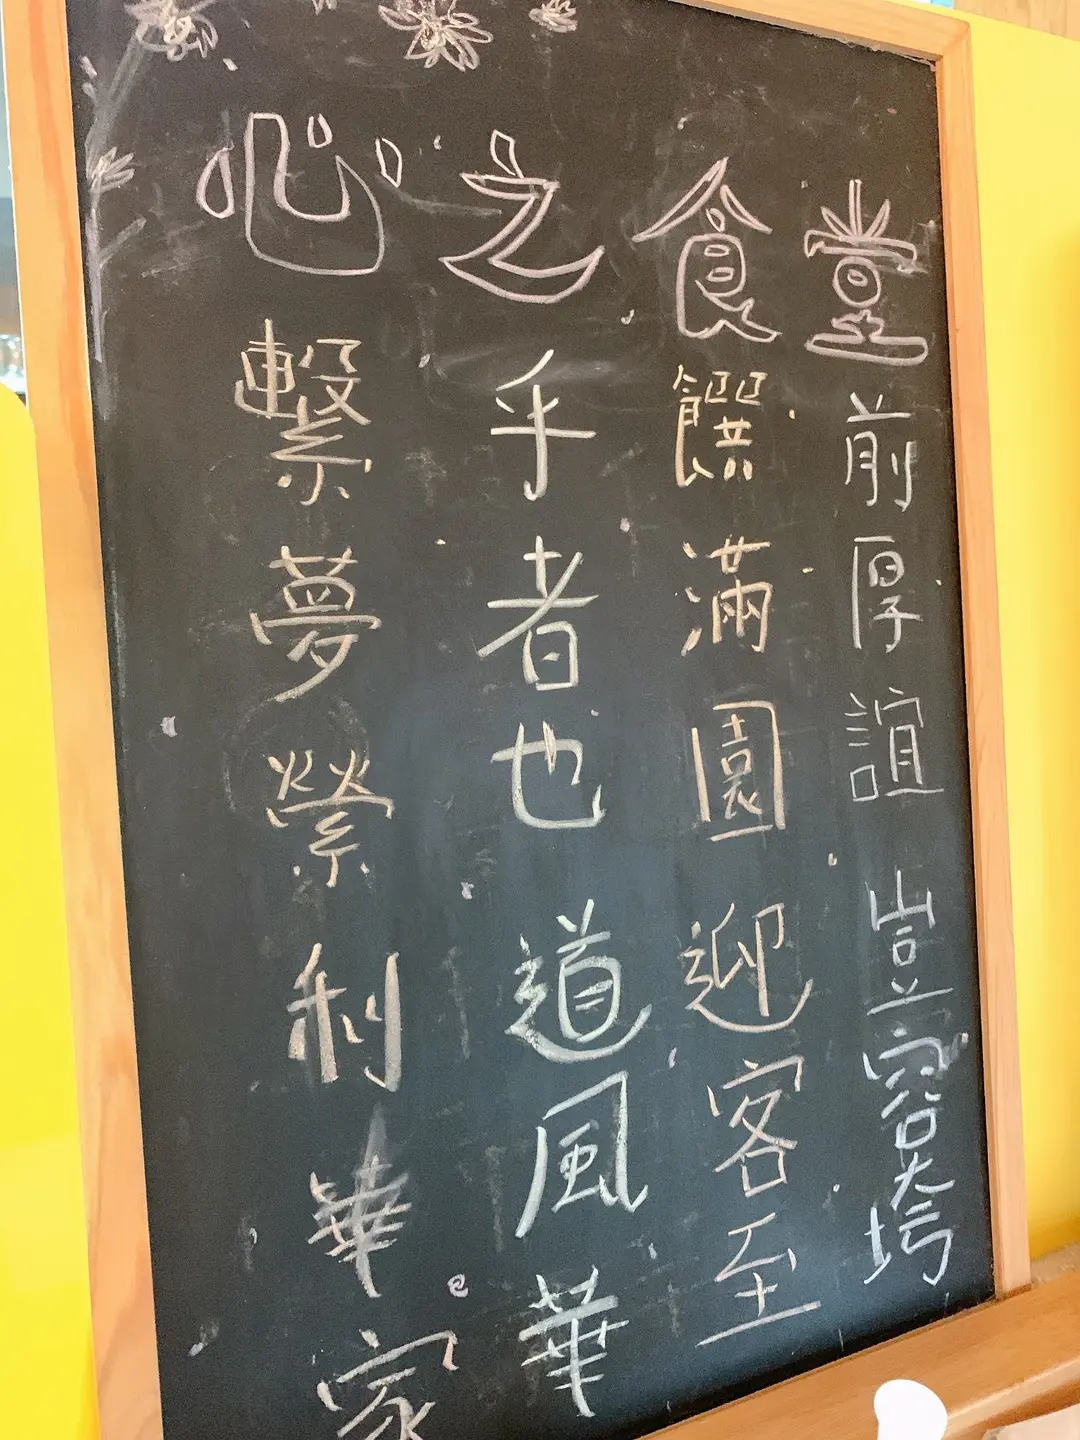 心繫夢縈利華家
之乎者也道風華
食饌滿園迎客至
堂前厚誼豈容垮